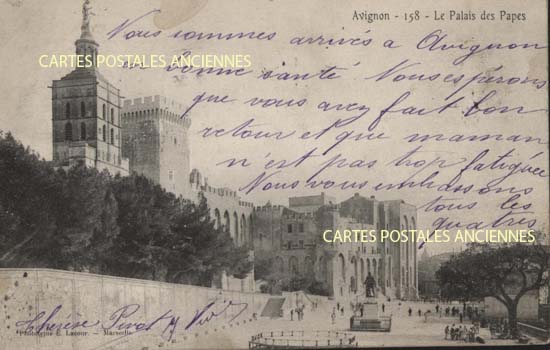 Avignon - 158 - Le Palais des Papes
Nous sommes arrivés a Avignon
CARTES POSTALES ANCIENNES
en bonne santé Nous espérons
que vous avez fait bon
retour et que maman
n'est pas trop fatiguée
Nous vous embrassons
tous les
quatres
CARTES POSTALES ANCIENNES
Thérèse
Phototypie E. Lacour. - Marseille